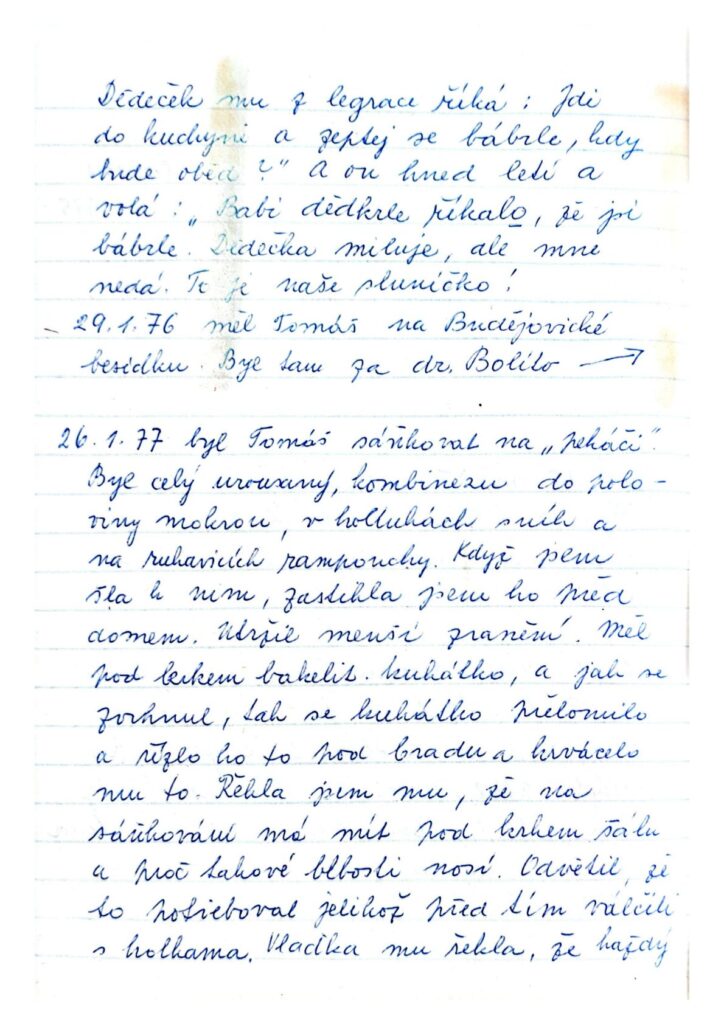 Dědeček mu z legrace říká : Jdi
do kuchyni a zeptej se bábrle, kdy
bude oběd?" A on hned letí a
volá : „Babi dědkrle říkalo, že jsi
bábrle. Dědečka miluje, ale mne
nedá. To je naše sluníčko!
29.1.76 měl Tomáš na Budějovické
besídku. Byl tam za dr. Bolíto →
26.1.77 byl Tomáš sáňkovat na „pekáči".
Byl celý urousaný, kombinezu do polo-
viny mokrou, v holinkách sníh a
na rukavicích rampouchy. Když jsem
šla k nim, zastihla jsem ho před
domem. Utržil menší zranění. Měl
pod krkem bakelit. kukátko, a jak se
zvrhnul, tak se kukátko přelomilo
a řízlo ho to pod bradu a krvácelo
mu to. Řekla jsem mu, že na
sáňkování má mít pod krkem šálu
a proč takové blbosti nosí. Odvětil, že
to potřeboval jelikož před tím válčili
s holkama. Vlaďka mu řekla, že každý